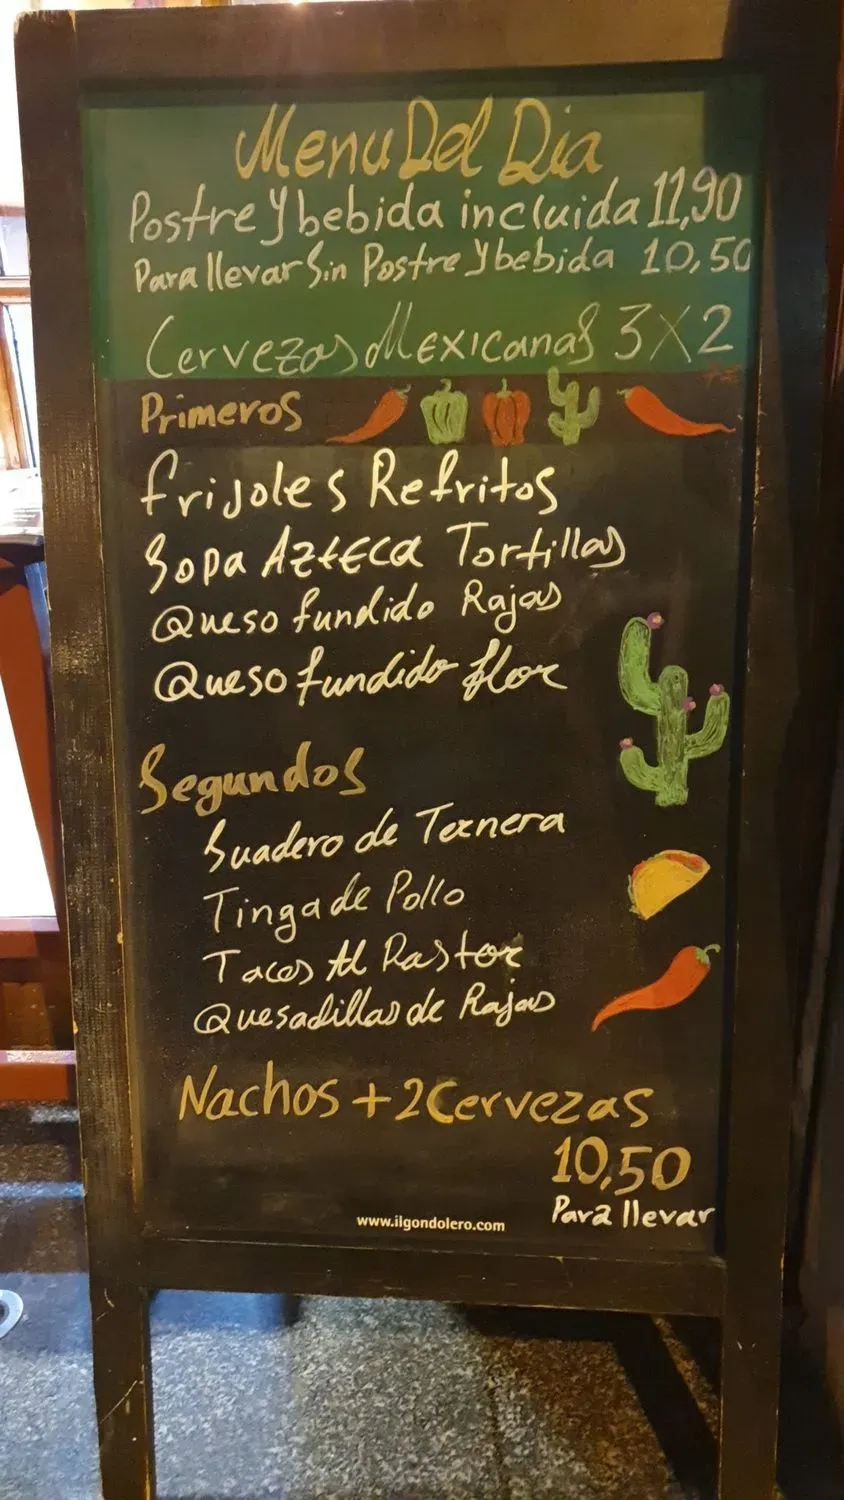 Menu Del Dia
Postre y bebida incluida 11,90
Para llevar Sin Postre y bebida 10,50
Cervezas Mexicanas 3X2
Primeros
frijoles Refritos
Sopa AztEca Tortillas
Queso fundido Rajas
Queso fundido flor
Segundos
Suadero de Ternera
Tinga de Pollo
Tacos Al Pastor
Quesadillas de Rajas
Nachos + 2 Cervezas
10,50
Para llevar
www.ilgondolero.com